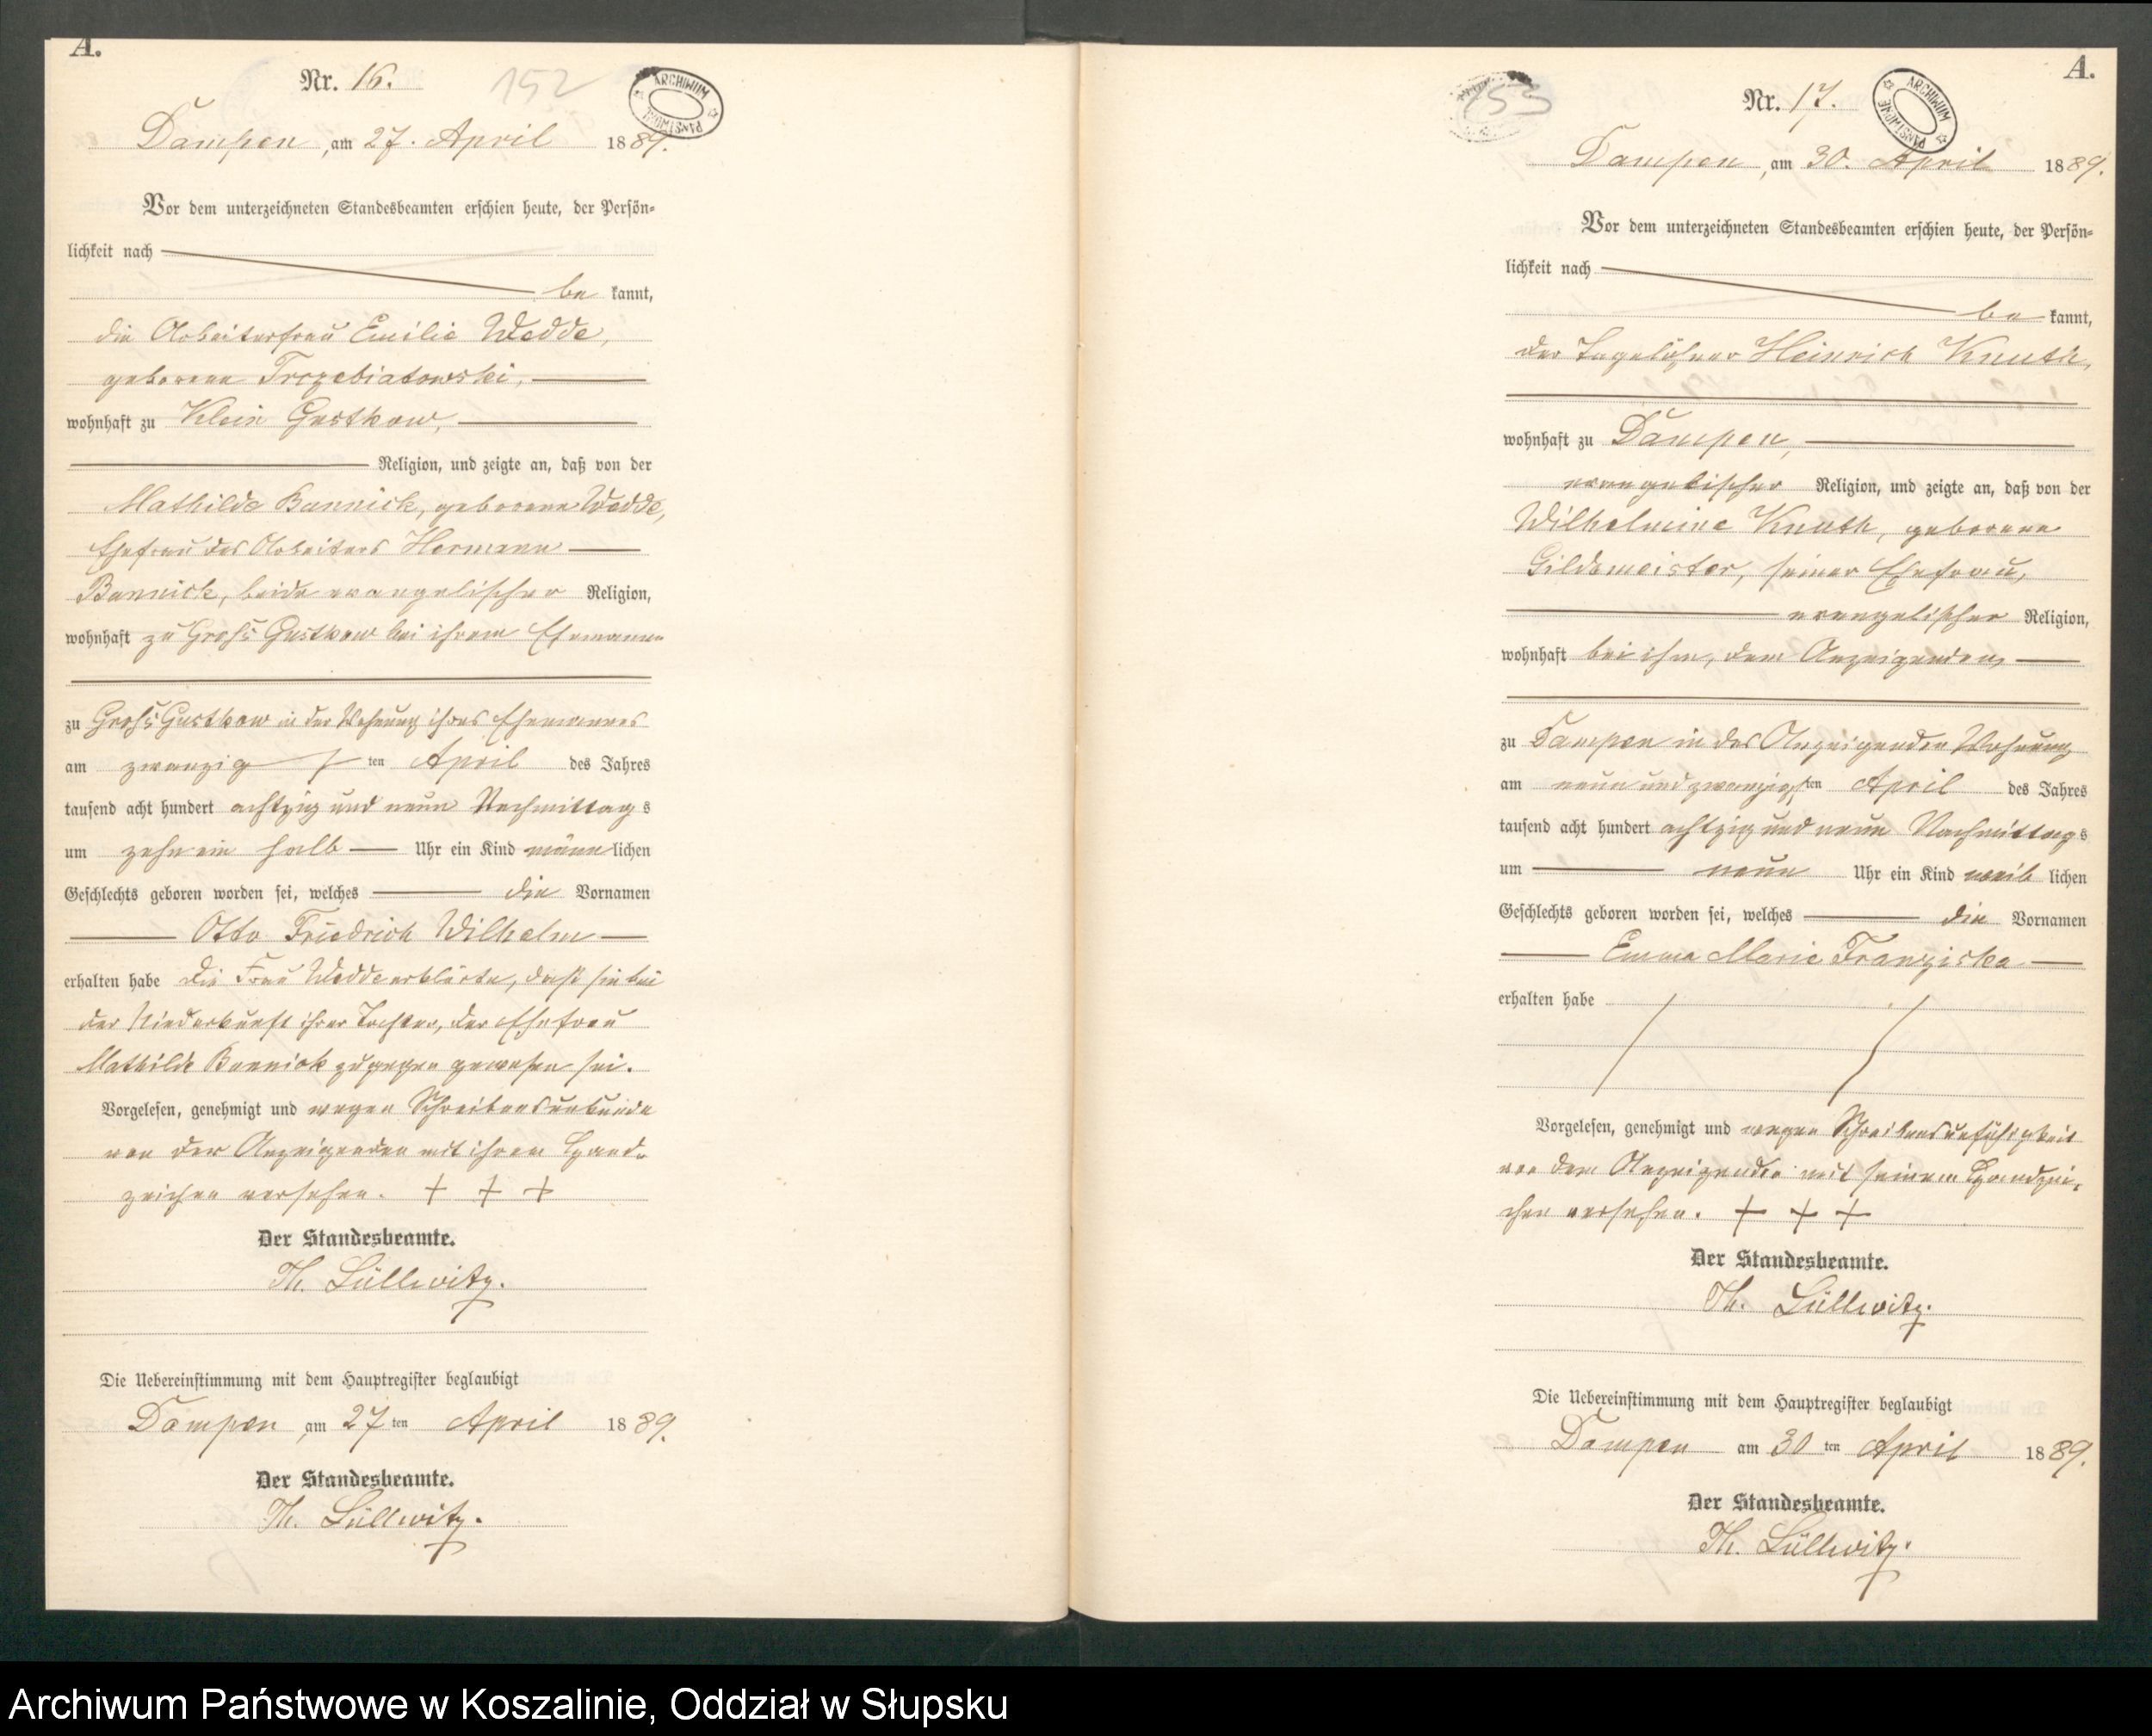 A.
Nr. 16.
152
ARCHIWUM PAŃSTWOWE
Dampen, am 27. April 1889.
Vor dem unterzeichneten Standesbeamten erschien heute, der Persön-
lichkeit nach
be kannt,
die Arbeiterfrau Emilie Wedde,
geborene Trzebiatowski,
wohnhaft zu Klein Gustkow,
Religion, und zeigte an, daß von der
Mathilde Bannick, geborene Wedde,
Ehefrau des Arbeiters Hermann
Bannick, beide evangelischer Religion,
wohnhaft zu Groß Gustkow bei ihrem Ehemanne
zu Groß Gustkow in der Wohnung ihres Ehemannes
am zwanzigsten April des Jahres
tausend acht hundert achtzig und neun Nachmittags
um zehn ein halb Uhr ein Kind männlichen
Geschlechts geboren worden sei, welches die Vornamen
Otto Friedrich Wilhelm
erhalten habe Die Frau Wedde erklärte, daß sie bei
der Niederkunft ihrer Tochter, der Ehefrau
Mathilde Bannick zugegen gewesen sei.
Vorgelesen, genehmigt und wegen Schreibensunkunde
von der Anzeigenden mit ihrem Hand-
zeichen versehen. + + +
Der Standesbeamte.
Th. Lüllwitz.
Die Uebereinstimmung mit dem Hauptregister beglaubigt
Dampen, am 27ten April 1889.
Der Standesbeamte.
Th. Lüllwitz.
A.
Nr. 17.
153
ARCHIWUM PAŃSTWOWE
Dampen, am 30. April 1889.
Vor dem unterzeichneten Standesbeamten erschien heute, der Persön-
lichkeit nach
be kannt,
der Tagelöhner Heinrich Knuth,
wohnhaft zu Dampen,
evangelischer Religion, und zeigte an, daß von der
Wilhelmine Knuth, geborene
Gildemeister, seiner Ehefrau,
evangelischer Religion,
wohnhaft bei ihm, dem Anzeigenden,
zu Dampen in des Anzeigenden Wohnung
am neun und zwanzigsten April des Jahres
tausend acht hundert achtzig und neun Nachmittags
um neun Uhr ein Kind weiblichen
Geschlechts geboren worden sei, welches die Vornamen
Emma Marie Franziska
erhalten habe
Vorgelesen, genehmigt und wegen Schreibensunfähigkeit
von dem Anzeigenden mit seinem Handzei-
chen versehen. + + +
Der Standesbeamte.
Th. Lüllwitz.
Die Uebereinstimmung mit dem Hauptregister beglaubigt
Dampen am 30ten April 1889.
Der Standesbeamte.
Th. Lüllwitz.
Archiwum Państwowe w Koszalinie, Oddział w Słupsku